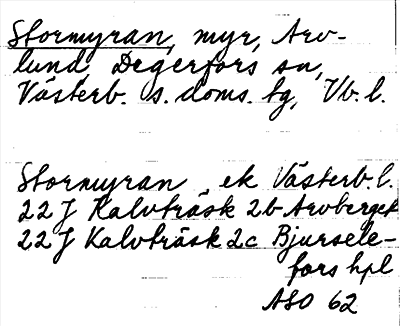 Stormyran, myr, Arv-
lund, Degerfors sn,
Västerb. s. doms. tg, Vb. l.
Stormyran ek Västerb. l.
22 J Kalvträsk 2b Arvberget
22 J Kalvträsk 2c Bjursele-
fors hpl
ASO 62